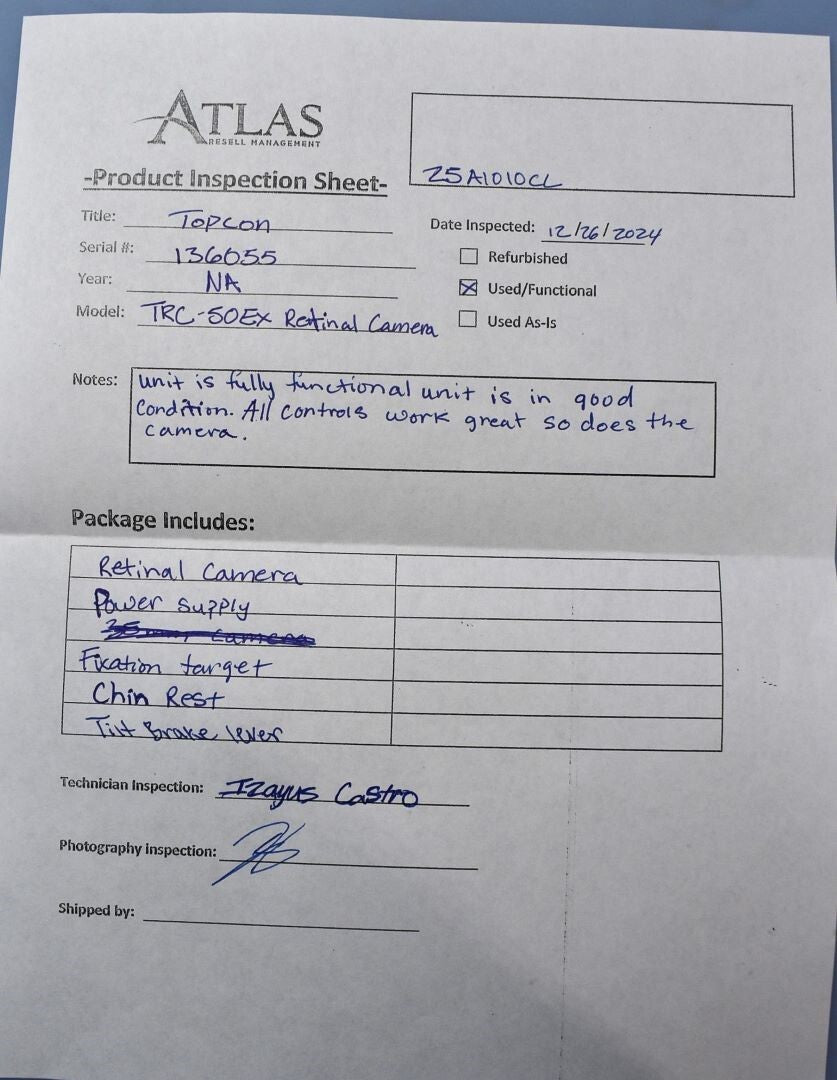 ATLAS
RESELL MANAGEMENT
25A1010CL
-Product Inspection Sheet-
Title: Topcon
Date Inspected: 12/26/2024
Serial #: 136055
Refurbished
Year: NA
Used/Functional
Model: TRC-50EX Retinal Camera
Used As-Is
Notes: unit is fully functional unit is in good
condition. All controls work great so does the
camera.
Package Includes:
Retinal Camera
Power supply
35mm camera
Fixation target
Chin Rest
Tilt Brake lever
Technician Inspection: Izayus Castro
Photography inspection:
Shipped by: